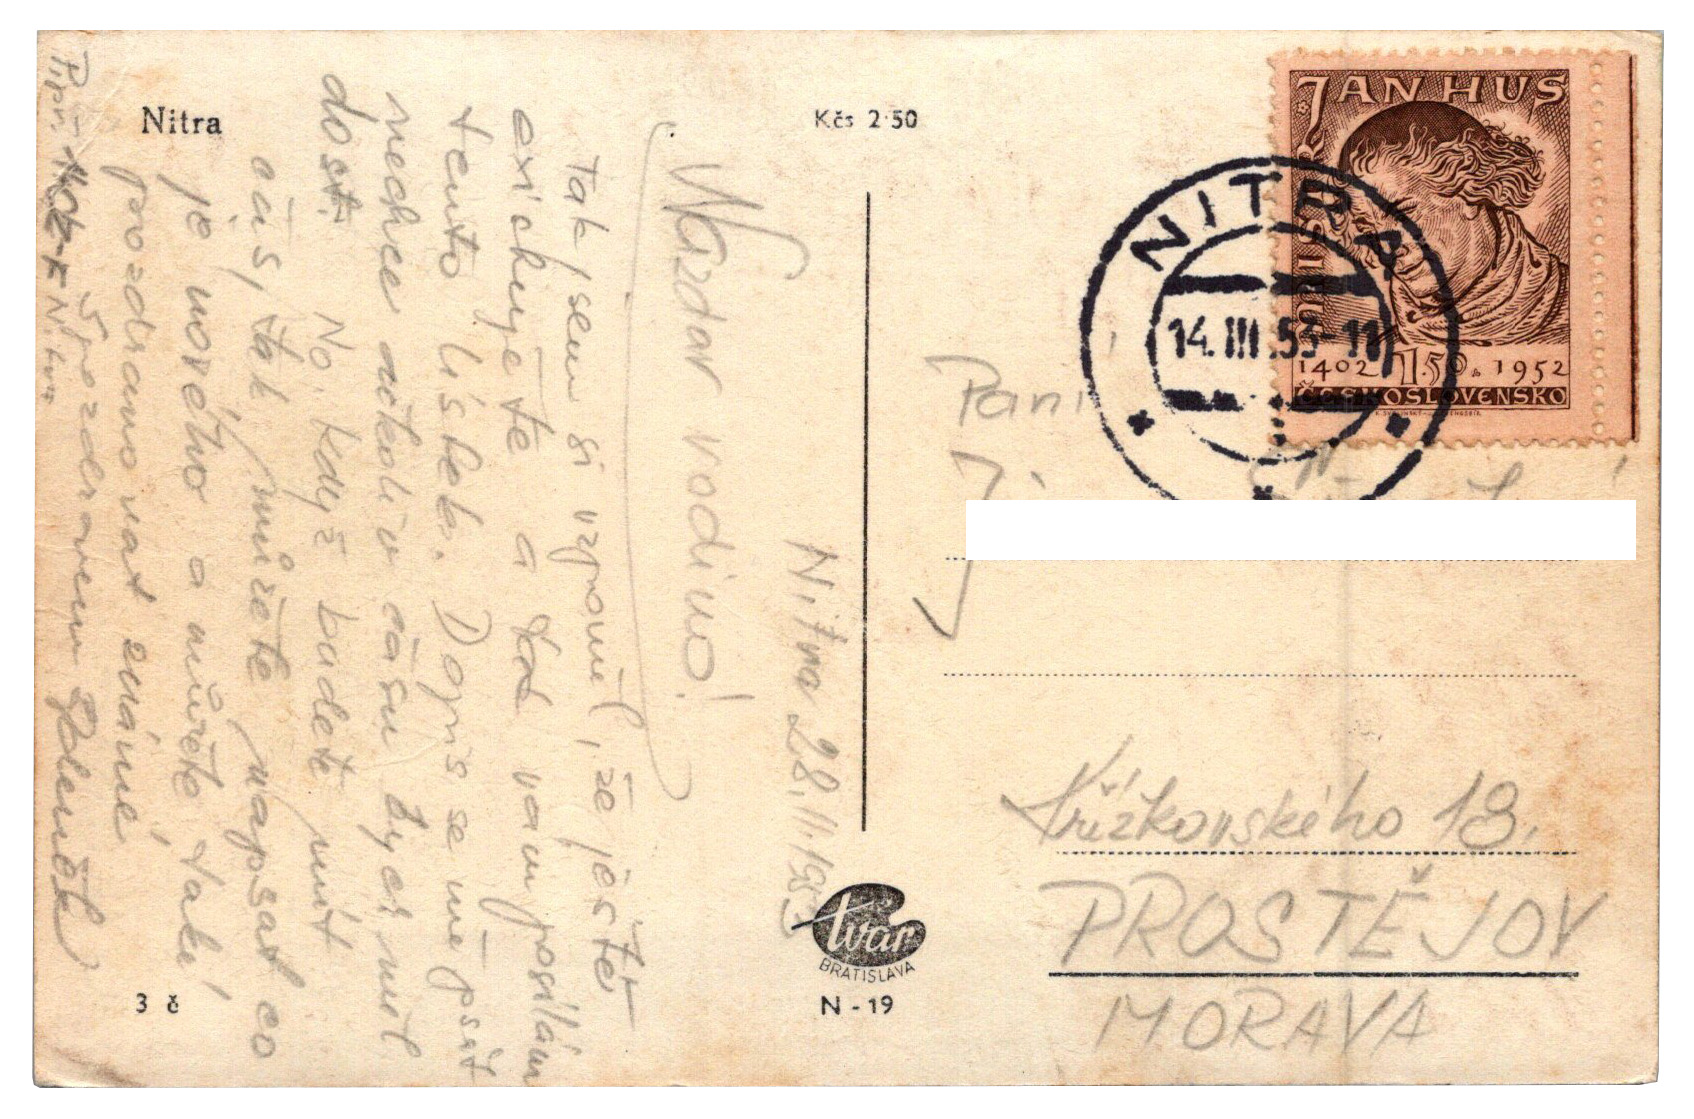 Nitra
Kčs 2·50
JAN HUS
1402 1.50 1952
ČESKOSLOVENSKO
NITRA
14. III. 53 - 11
Nitra 28. II. 1953
Nazdar rodino!
Tak jsem si vzpoměl, že ještě
exichujete a tak vám posílám
tento lístek. Dopis se mě psát
nechce ačkoliv času bych měl
dost.
No, když budete mít
čas, tak můžete napsat co
je nového a můžete také
pozdravovat známé
S pozdravem
Nitra
Paní
Křížkovského 18.
PROSTĚJOV
MORAVA
tvar
BRATISLAVA
N - 19
3 č